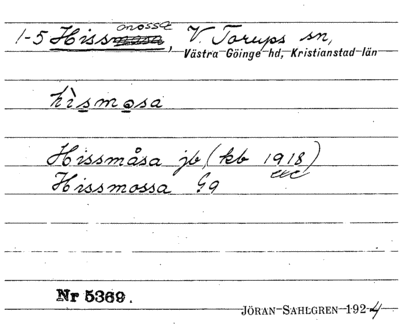 1-5 Hissmossa, V. Torups sn,
Västra Göinge hd, Kristianstad län
hìsmosa
Hissmåsa jb, (kb 1918)
Hissmossa Gg
Nr 5369.
JÖRAN SAHLGREN 1924